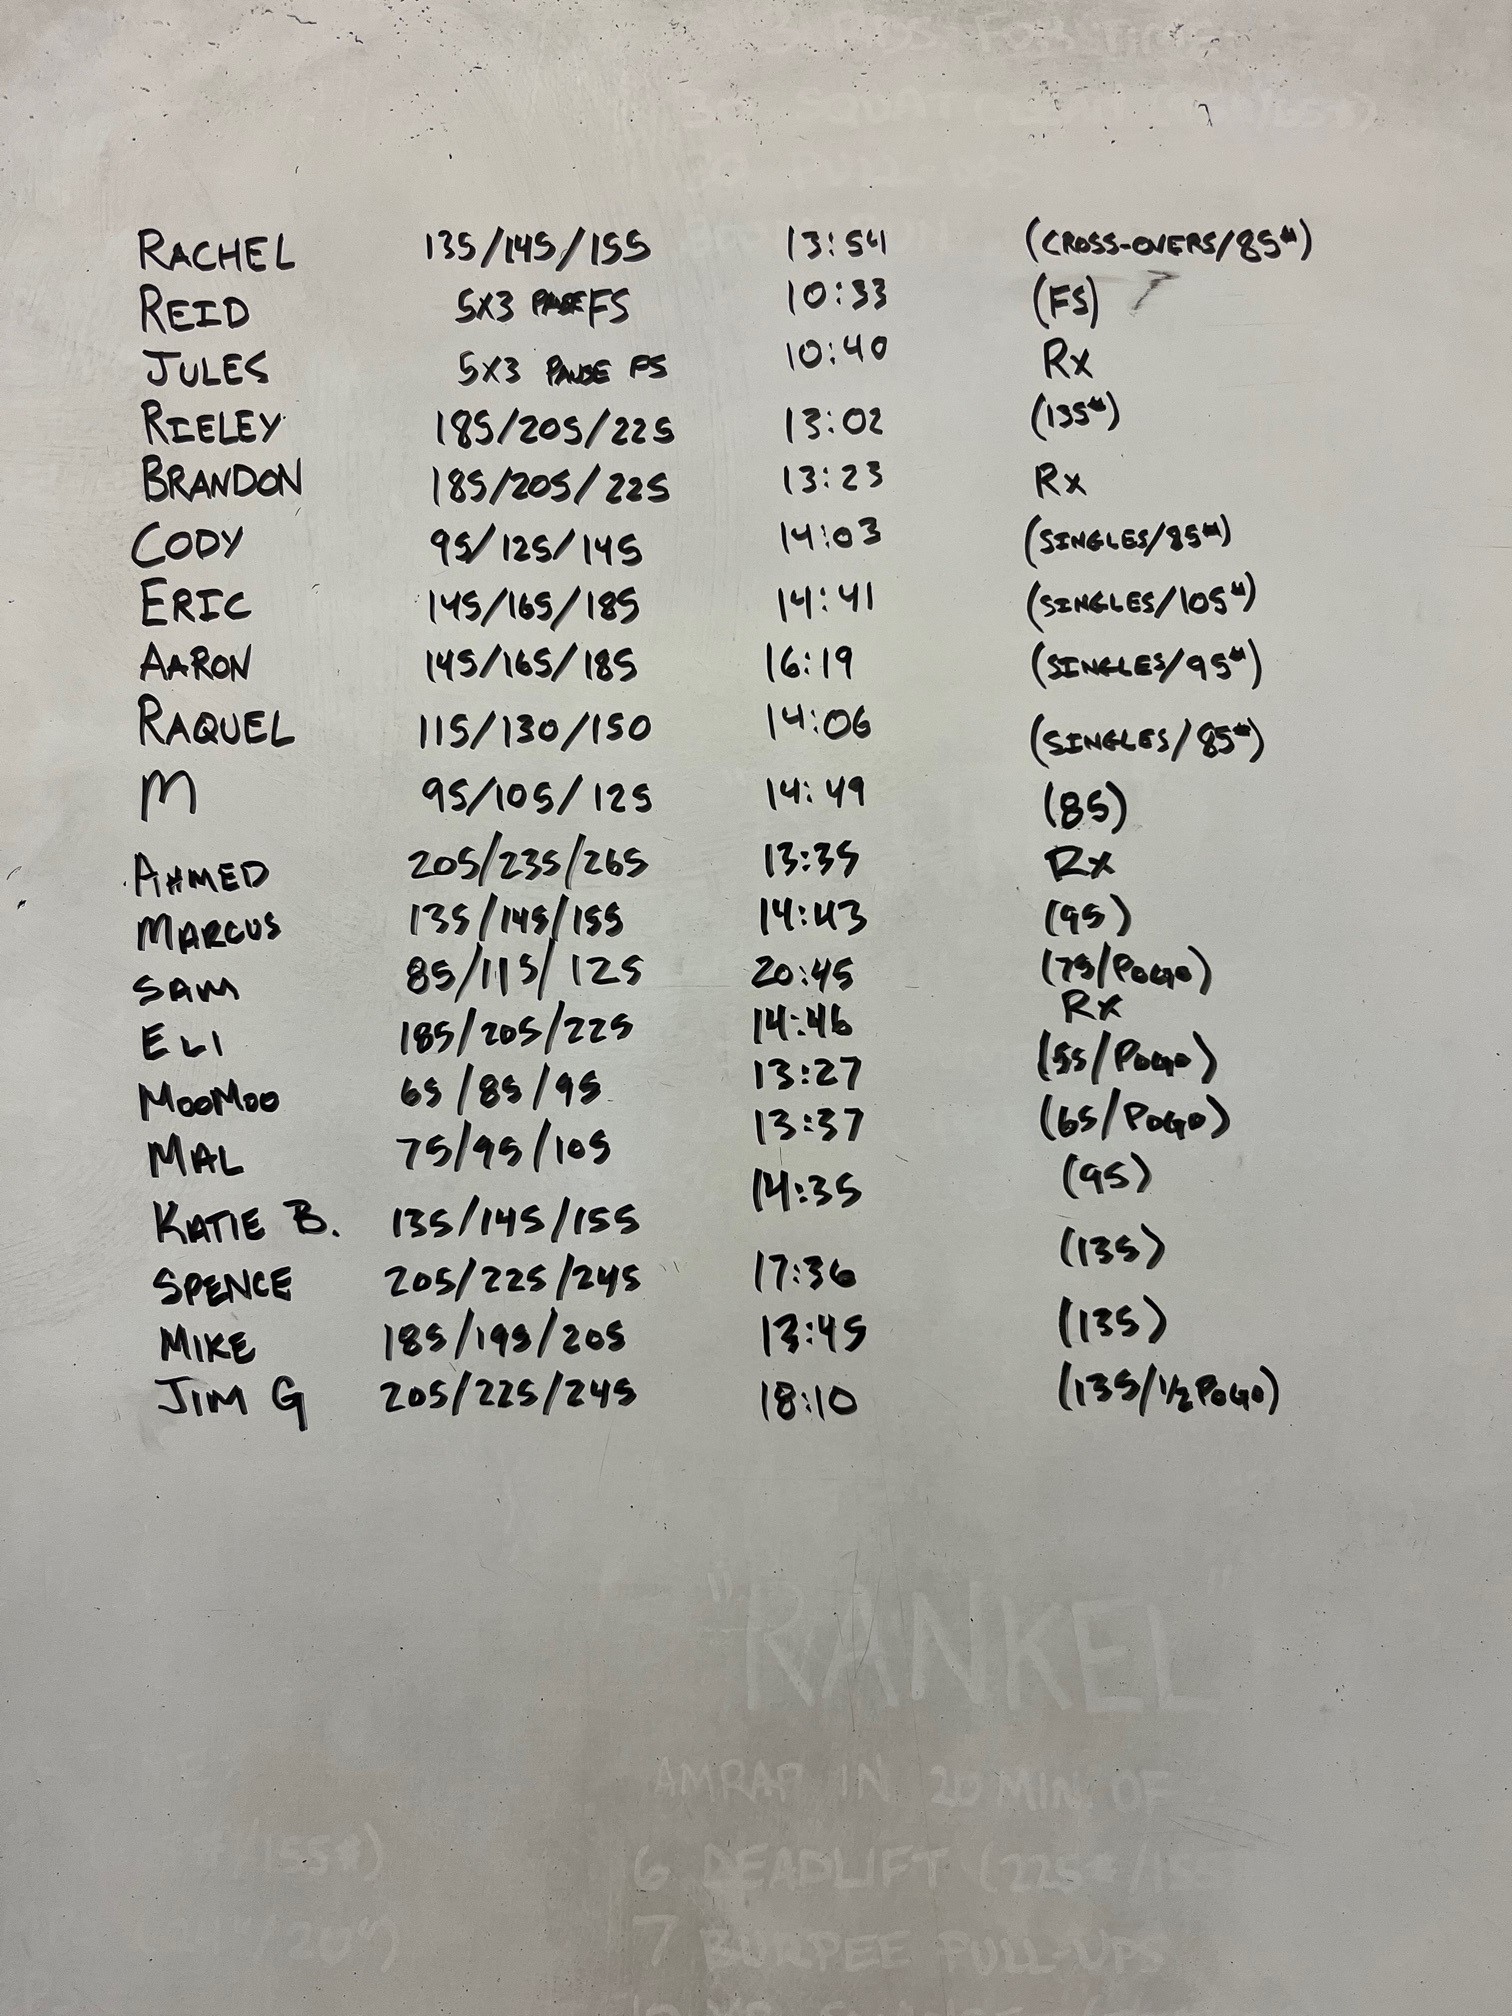 RACHEL 135/145/155 13:54 (CROSS-OVERS/85#)
REID 5X3 PAUSE FS 10:33 (FS)
JULES 5X3 PAUSE FS 10:40 Rx
RIELEY 185/205/225 13:02 (135#)
BRANDON 185/205/225 13:23 Rx
CODY 95/125/145 14:03 (SINGLES/85#)
ERIC 145/165/185 14:41 (SINGLES/105#)
AARON 145/165/185 16:19 (SINGLES/95#)
RAQUEL 115/130/150 14:06 (SINGLES/85#)
M 95/105/125 14:49 (85)
AHMED 205/235/265 13:35 Rx
MARCUS 135/145/155 14:43 (95)
SAM 85/115/125 20:45 (75/POGO)
ELI 185/205/225 14:46 Rx
MOOMOO 65/85/95 13:27 (55/POGO)
MAL 75/95/105 13:37 (65/POGO)
KATIE B. 135/145/155 14:35 (95)
SPENCE 205/225/245 17:36 (135)
MIKE 185/195/205 13:45 (135)
JIM G 205/225/245 18:10 (135/1/2 POGO)
"RANKEL"
AMRAP IN 20 MIN. OF
/155#) 6 DEADLIFT (225#/155
/20") 7 BURPEE PULL-UPS